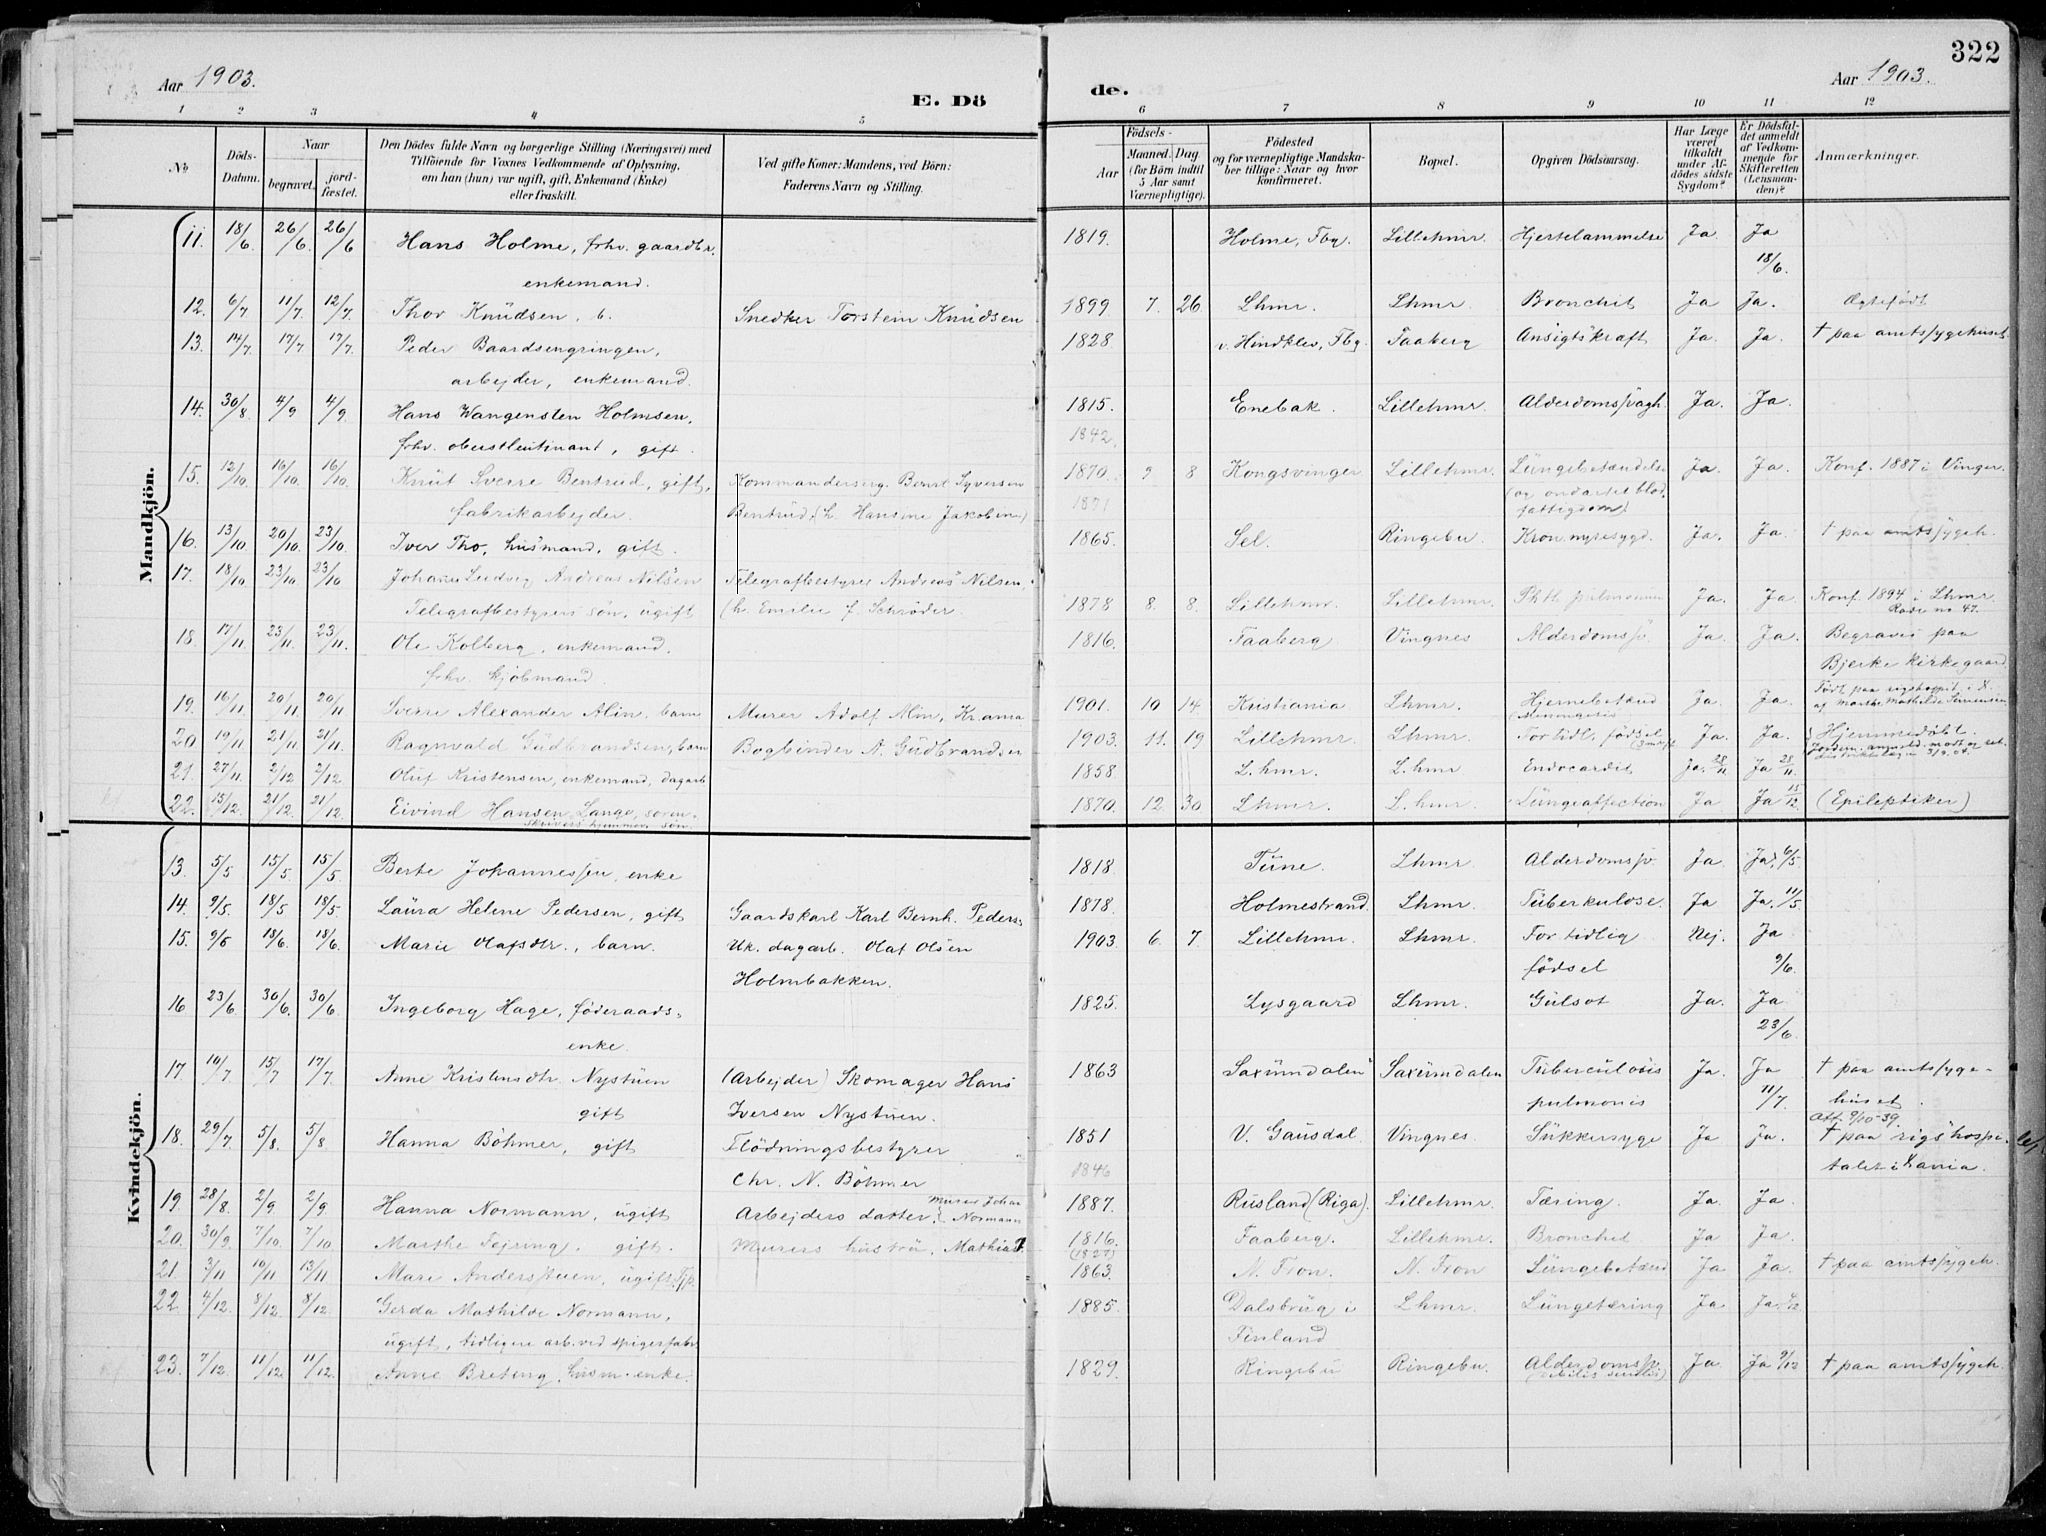 Aar 1903.
E. Dö
de.
Aar 1903.
322
1 2 3 4 5 6 7 8 9 10 11 12
No
Döds-Datum.
Naar
begravet.
jord-fæstet.
Den Dödes fulde Navn og borgerlige Stilling (Næringsvei) med
Tilföiende for Voxnes Vedkommende af Oplysning,
om han (hun) var ugift, gift, Enkemand (Enke)
eller fraskilt.
Ved gifte Koner: Mandens, ved Börn:
Faderens Navn og Stilling.
Födsels-
Aar
Maaned. Dag
(for Börn indtil
5 Aar samt
Værnepligtige).
Födested
og for værnepligtige Mandska-
ber tillige: Naar og hvor
konfirmeret.
Bopæl.
Opgiven Dödsaarsag.
Har Læge
været
tilkaldt
under Af-
dödes sidste
Sygdom?
Er Dödsfal-
det anmeldt
af Vedkom-
mende for
Skifteretten
(Lensman-
den)?
Anmærkninger.
Mandkjön.
11. 18/6 26/6 26/6 Hans Holme, frhv. gaardbr. 1819. Holme, Fbg. Lillehmr. Hjertelammelse Ja. Ja
enkemand. 18/6.
12. 6/7 11/7 12/7 Thor Knudsen, b. Snedker Torstein Knudsen 1899 7. 26. Lhmr. Lhmr. Bronchit Ja Ja. Ægtefødt
13. 14/7 17/7 17/7 Peder Baardsengringen, 1828 v. Hindklev, Fbg. Faaberg Ansigtskræft Ja. Ja. † paa amtssygehuset
arbejder, enkemand.
14. 30/8 4/9 4/9 Hans Wangensten Holmsen, 1815. Enebak. Lillehmr. Alderdomssvagh. Ja. Ja.
frhv. oberstleutinant, gift. 1842.
15. 12/10 16/10 16/10 Knut Sverre Bentrud, gift, Kommanderserg. Bernt Syversen 1870. 9 8 Kongsvinger Lillehmr. Lungebetændelse Ja. Ja. Konf. 1887 i Vinger.
fabrikarbejder. Bentrud, (h. Hansine Jakobine) 1871 (og ondartet blod-
fattigdom)
16. 13/10 20/10 23/10 Iver Tho, husmand, gift. 1865. Sel. Ringebu Kron. nyresygd. Ja. Ja. † paa amtssygeh.
17. 18/10 23/10 23/10 Johan Ludvig Andreas Nilsen Telegrafbestyrer Andreas Nilsen,
Telegrafbestyrers søn, ugift (h. Emilie f. Schrøder. 1878 8. 8. Lillehmr. Lillehmr. Phth. pulmonum Ja. Ja Konf. 1894 i Lhmr.
Rase no 47.
18. 17/11 23/11 23/11 Ole Kolberg, enkemand. 1816. Faaberg Vingnes Alderdomssv. Ja. Ja. Begraves paa
frhv. kjøbmand. Bjerke kirkegaard.
19. 16/11 20/11 20/11 Sverre Alexander Alin, barn Murer Adolf Alin, Kr.ania 1901. 10 14. Kristiania Lhmr. Hjernebetænd Ja. Ja. Født paa rigshospit. i K.
(Meningitis
20 19/11 21/11 21/11 Ragnvald Gudbrandsen, barn Bogbinder A. Gudbrandsen 1903. 11. 19 Lillehmr. Lhmr. For tidl. fødsel Ja. Ja. Hjemmedøbt.
21. 27/11 2/12 2/12 Oluf Kristensen, enkemand, dagarb 1858. L.hmr. L.hmr Endocardit Ja. 28/11 Ja 28/11.
22. 15/12. 21/12. 21/12. Eivind Hansen Lange, soren- 1870. 12 30. Lhmr. L.hmr. Lungeaffection Ja Ja 15/12. (Epileptiker)
skrivers hjemmev. søn.
Kvindekjön.
13. 5/5 15/5 15/5 Berte Johannessen, enke 1818. Tune. Lhmr. Alderdomssv. Ja. Ja. 6/5
14. 9/5. 18/5 18/5. Laura Helene Pedersen, gift Gaardskarl Karl Bernh. Peders: 1878. Holmestrand. Lhmr. Tuberkulose. Ja Ja. 11/5
15. 9/6 18/6. 18/6. Marie Olafsdtr., barn. Uk. dagarb. Olaf Olsen 1903 6. 7. Lillehmr. Lhmr. For tidlig Nej. Ja
Holmbakken. fødsel 9/6.
16 23/6. 30/6. 30/6. Ingeborg Hage, føderaads- 1825. Lysgaard Lhmr. Gulsot Ja. Ja
enke. 23/6
17. 10/7 15/7 17/7. Anne Kristensdtr Nystuen (Arbejder) Skomager Hans 1863 Saxumdalen Saxumdalen Tuberculosis Ja. Ja † paa amtssyge-
gift Iversen Nystuen. pulmonis 11/7. huset.
Att. 9/10-39.
18. 29/7 5/8. 5/8 Hanna Böhmer, gift Flödningsbestyrer 1851 V. Gausdal. Vingnes. Sukkersyge Ja Ja. † paa rigshospi-
Chr. N. Böhmer 1846 talet i Kania.
19. 28/8. 2/9 2/9 Hanna Normann, ugift Arbejders datter. Murer Johan Normann 1887. Rusland (Riga). Lillehmr. Tæring. Ja. Ja.
20. 30/9 7/10. 7/10. Marthe Fejring, gift. Murers hustru, Mathias 1816. (1827) Faaberg. Lillehmr. Bronchit Ja Ja.
21. 3/11 10/11 13/11 Mari Anderstuen, ugift, Tjp. 1863. N. Fron. N. Fron Lungebetænd Ja Ja. † paa amtssygeh.
22. 4/12. 8/12. 8/12. Gerda Mathilde Normann, 1885. Dalsbrug i Lhmr. Lungetæring Ja Ja.
ugift, tidligere arb. ved spigerfabr. Finland
23. 7/12. 11/12. 11/12. Anne Breteng, husm. enke. 1829. Ringebu Ringebu. Alderdomssv. Ja. Ja 9/12 † paa amtssygeh.